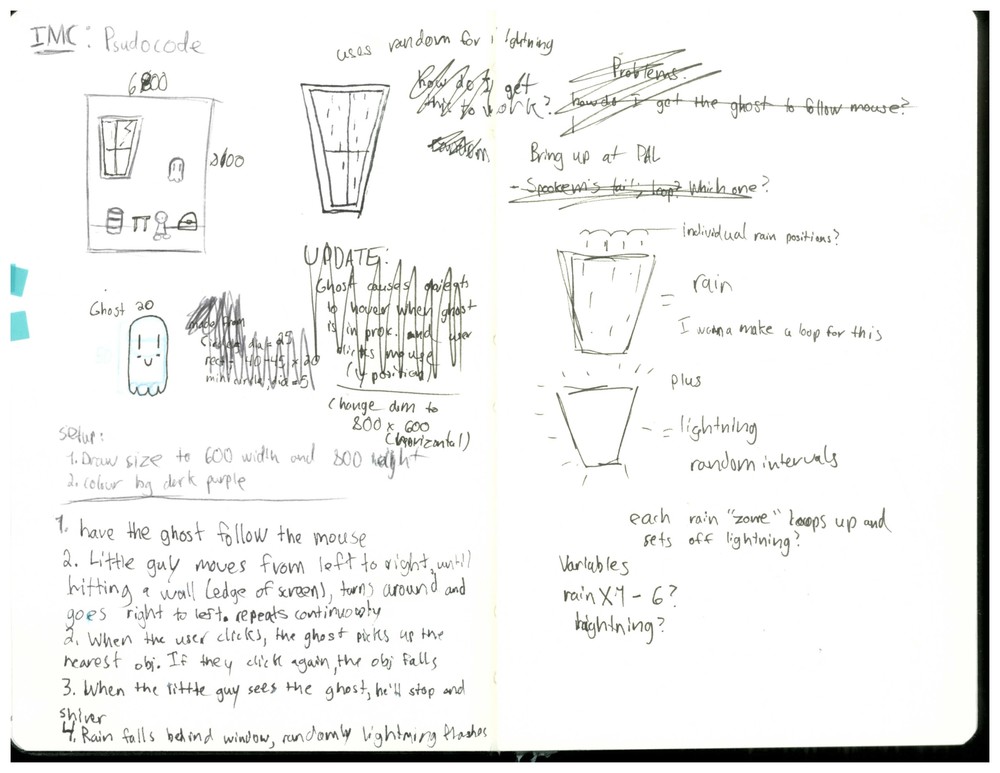 IMC: Psudocode
uses random for lightning
600
800
how do I get
this to work?
random
Ghost 20
made from
rect = 40-45 x 20
mini circle, dia = 5
UPDATE:
Ghost causes objects
to hover when ghost
is in prox. and user
clicks mouse
(is position)
Change dim to
800 x 600
(horizontal)
setup:
1. Draw size to 600 width and 800 height
2. colour bg dark purple
1. have the ghost follow the mouse
2. Little guy moves from left to right, until
hitting a wall (edge of screen), turns around and
goes right to left. repeats continuosly
2. When the user clicks, the ghost picks up the
nearest obj. If they click again, the obj falls
3. When the little guy sees the ghost, he'll stop and
shiver
4. Rain falls behind window, randomly lightning flashes
Problems.
how do I get the ghost to follow mouse?
Bring up at PAL
- Spookem's tail; loop? Which one?
individual rain positions?
= rain
I wanna make a loop for this
plus
= lightning
random intervals
each rain "zone" loops up and
sets off lightning?
Variables
rain XY - 6?
lightning?